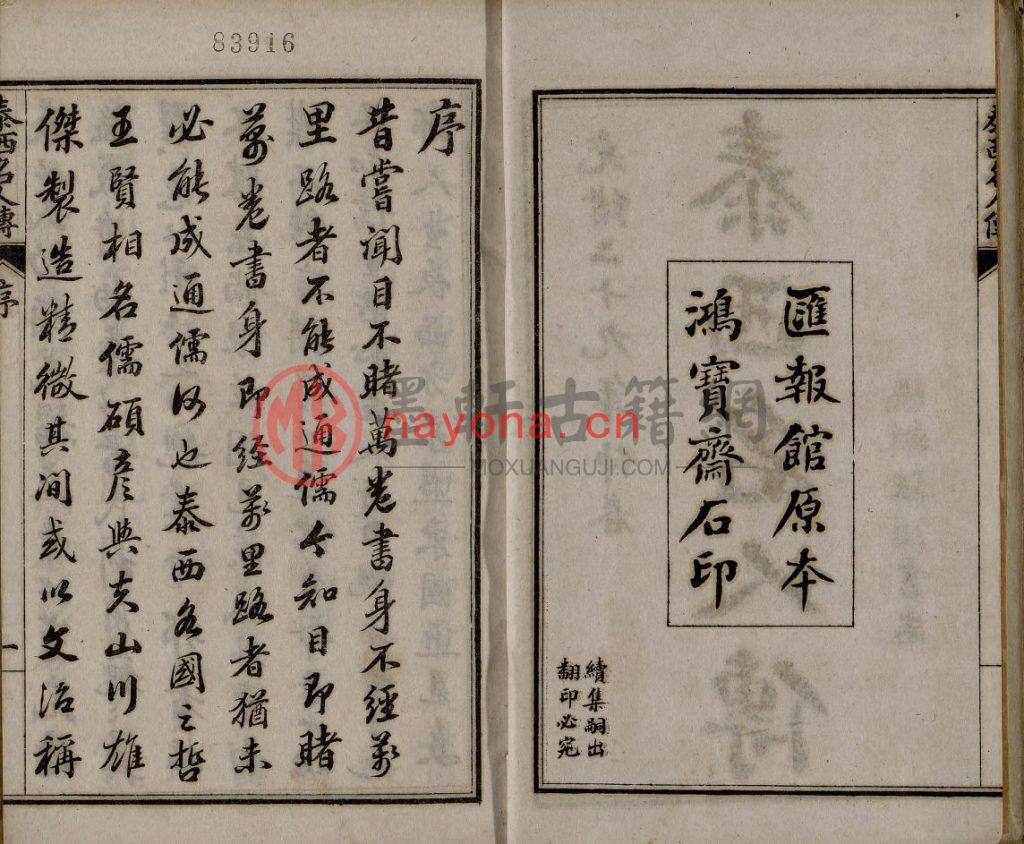 83916
匯報館原本
鴻寶齋石印
續集嗣出
翻印必究
序
昔嘗聞目不睹萬卷書身不經萬
里路者不能成通儒今知目即睹
萬卷書身即經萬里路者猶未
必能成通儒何也泰西各國之哲
王賢相名儒碩彥與夫山川雄
傑製造精微其間或以文治稱
泰西名人傳
序
一
墨軒古籍網
nayona.cn
MOXUANGUJI.COM